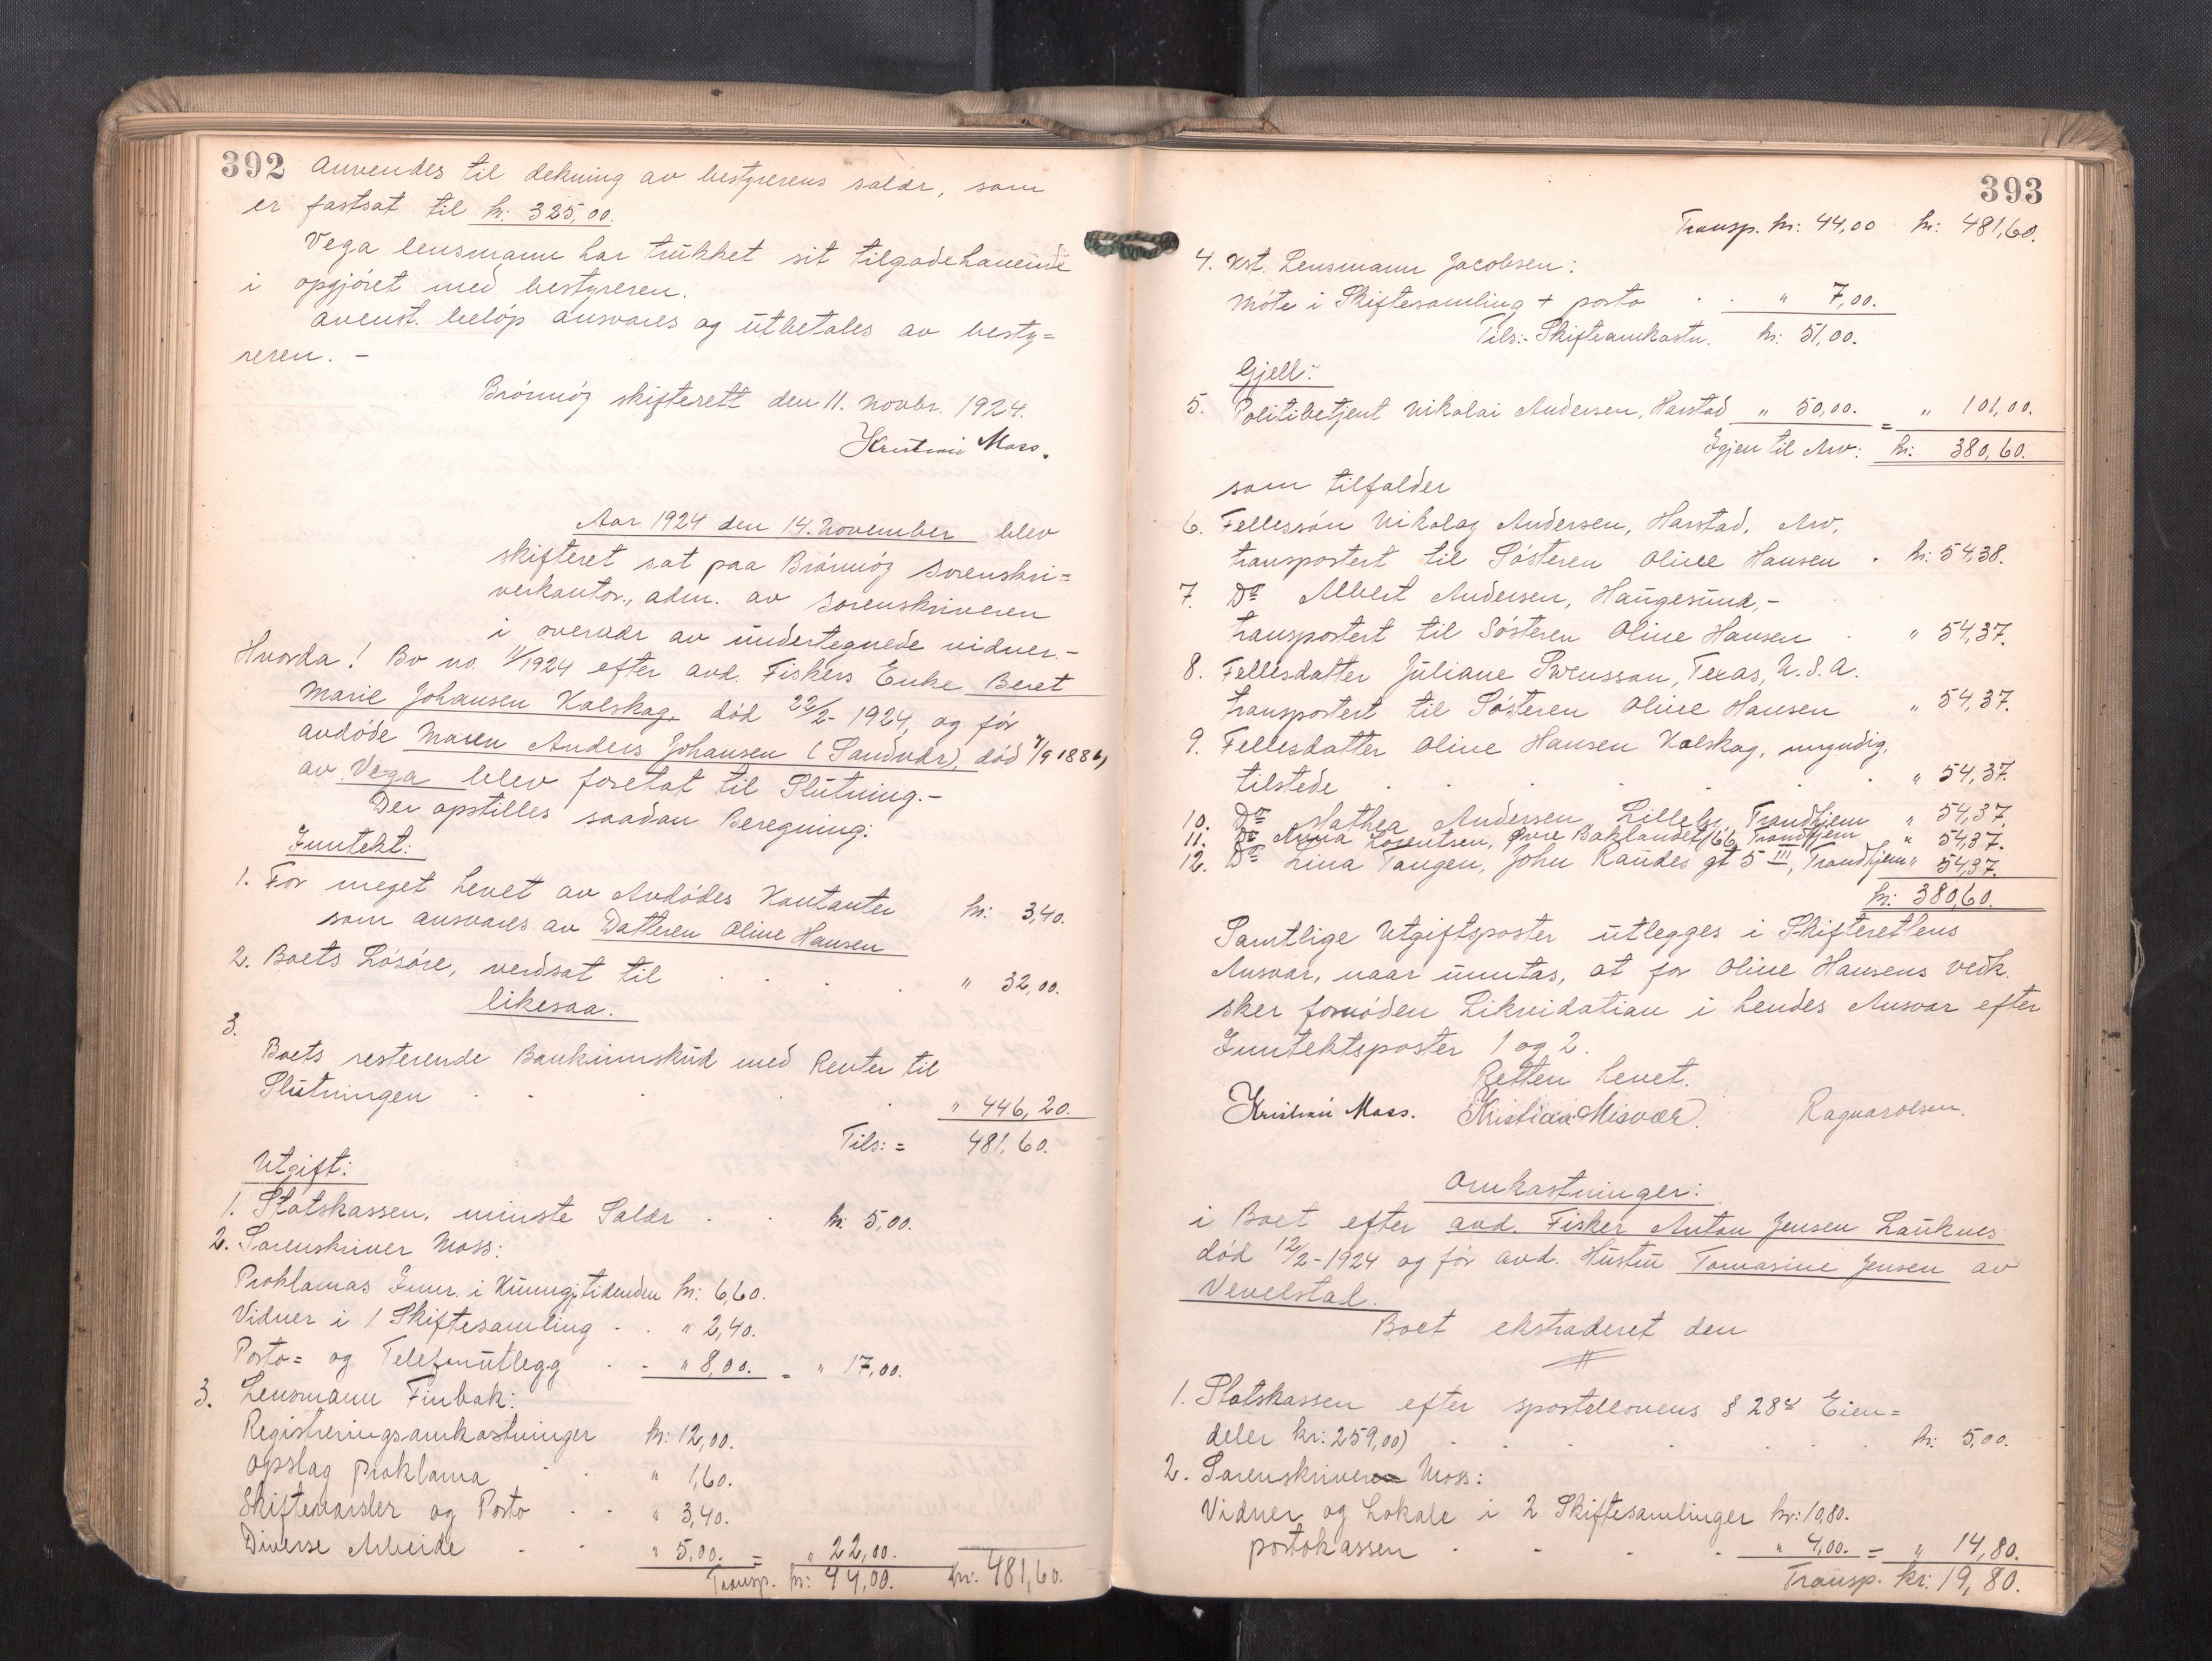 392 Anvendes til dekning av bestyrerens salær, som
er fastsat til kr: 325,00.
Vega lensmann har trukket sit tilgodehavende
i opgjøret med bestyreren.
Ovenst. beløp ansvares og utbetales av besty=
reren. -
Brønnøy skifterett den 11. novbr. 1924.
Kristian Moss.
Aar 1924 den 14. November blev
skifteret sat paa Brønnøy Sorenskri=
verkontor, adm. av Sorenskriveren
i overvær av undertegnede vidner.-
Hvorda! Bo no. 11/1924 efter avd. Fiskers Enke Beret
Marie Johansen Kalskag, død 22/2- 1924, og før
avdøde Anders Johansen (Sandvær), død 7/9 1886,
av Vega blev foretat til Slutning.-
Der opstilles saadan Beregning:
Inntekt:
1. For meget hevet av Avdødes Kontanter
som ansvares av Datteren Oline Hansen kr: 3,40.
2. Boets Løsøre, verdsat til . . . " 32,00.
likesaa.
3.
Boets resterende Bankinnskud med Renter til
Slutningen . . . . " 446,20.
Tils: = 481,60.
Utgift:
1. Statskassen, minste Salær . . kr: 5,00.
2. Sorenskriver Moss:
Proklamas Innr. i Kunngj.tidenden kr: 6,60.
Vidner i 1 Skiftesamling . . " 2,40.
Porto= og Telefonutlegg . . " 8,00. = " 17,00.
3. Lensmann Finbak:
Registreringsomkostninger kr: 12,00.
Opslag proklama . . " 1,60.
Skiftevarsler og Porto . . " 3,40.
Diverse Arbeide . . " 5,00. = " 22,00.
Transp. kr: 44,00. kr: 481,60.
393
Transp. kr: 44,00 kr: 481,60.
4. Kst. Lensmann Jacobsen:
Møte i Skiftesamling + porto . . " 7,00.
Tils:- Skifteomkostn. kr: 51,00.
Gjell:
5. Politibetjent Nikolai Andersen, Harstad " 50,00. = " 101,00.
Igjen til Arv: kr: 380,60.
som tilfalder
6. Fellessøn Nikolay Andersen, Harstad, Arv,
transportert til Søsteren Oline Hansen . kr: 54,38.
7. Do Albert Andersen, Haugesund,-
transportert til Søsteren Oline Hansen . " 54,37.
8. Fellesdatter Juliane Swensson, Texas, U.S.A.
transportert til Søsteren Oline Hansen " 54,37.
9. Fellesdatter Oline Hansen Kalskag, myndig,
tilstede . . . . . " 54,37.
10. Do Mathea Andersen, Lilleby, Trondhjem " 54,37.
11. Do Anna Lorentsen, Øvre Baklandet 66, Trondhjem " 54,37.
12. Do Lina Tangen, John Raudes gt 5 III, Trondhjem " 54,37.
kr: 380,60.
Samtlige Utgiftsposter utlegges i Skifterettens
Ansvar, naar unntas, at for Oline Hansens vedk.
sker fornøden Likvidation i hendes Ansvar efter
Inntektsposter 1 og 2.
Retten hevet.
Kristian Moss. Kristian Misvær. Ragnar Olsen.
Omkostninger:
i Boet efter avd. Fisker Anton Jensen Lauknes
død 12/2-1924 og før avd. Hustru Tomasine Jensen av
Vevelstad.
Boet ekstraderet den
1. Statskassen efter sportellovens § 28 Eien=
deler kr: 259,00) . . . . . . kr: 5,00.
2. Sorenskriver Moss:
Vidner og Lokale i 2 Skiftesamlinger kr: 10,80.
portokassen . . . . " 4,00. = " 14,80.
Transp. kr: 19,80.